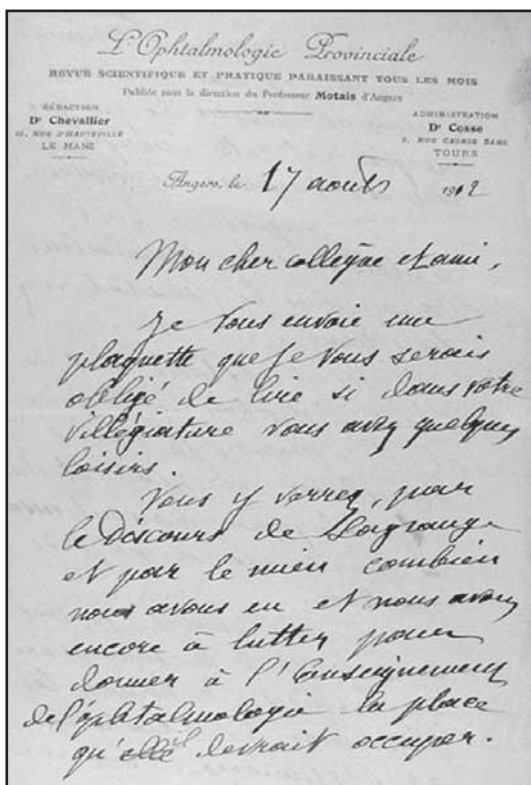 L'Ophtalmologie Provinciale
REVUE SCIENTIFIQUE ET PRATIQUE PARAISSANT TOUS LES MOIS
Publiée sous la direction du Professeur Motais d'Angers
RÉDACTION
Dr Chevallier
RUE D'HAUTEVILLE
LE MANS
ADMINISTRATION
Dr Cosse
RUE GEORGE SAND
TOURS
Angers, le 17 août 1912
Mon cher collègue et ami,
Je vous envoie une
plaquette que je vous serais
obligé de lire si dans votre
villégiature vous avez quelques
loisirs.
Vous y verrez, par
le discours de Lagrange
et par le mien combien
nous avons eu et nous avons
encore à lutter pour
donner à l'Enseignement
de l'ophtalmologie la place
qu'il devrait occuper.